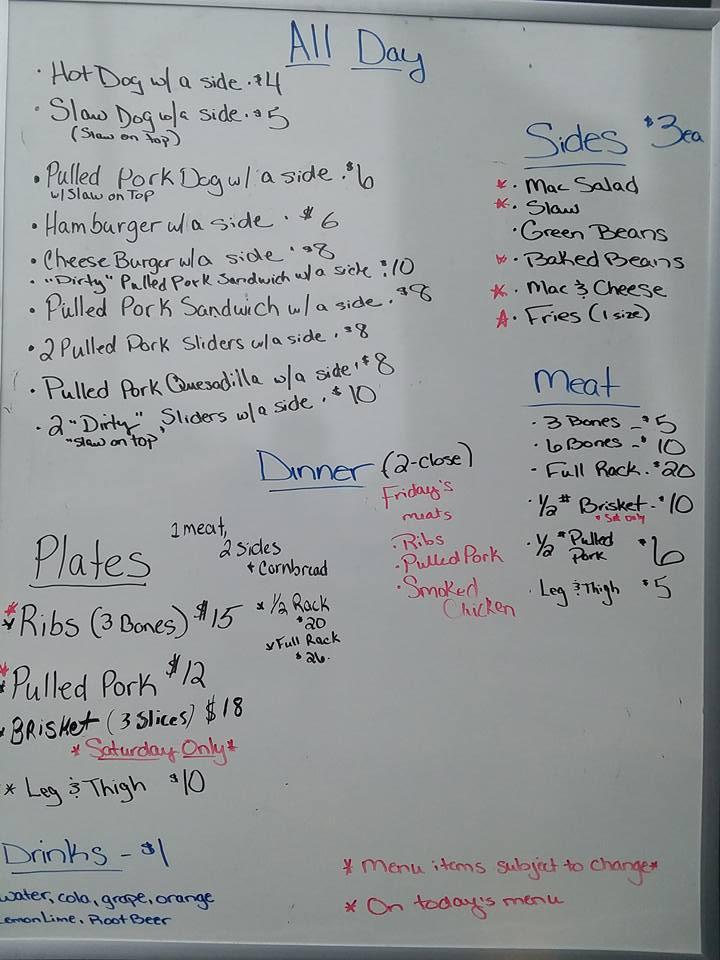 All Day
· Hot Dog w/ a side · $4
· Slaw Dog w/a side · $5
(Slaw on top)
· Pulled Pork Dog w/ a side · $6
w/ Slaw on Top
· Hamburger w/a side · $6
· Cheese Burger w/a side · $8
· "Dirty" Pulled Pork Sandwich w/a side · $10
· Pulled Pork Sandwich w/ a side · $8
· 2 Pulled Pork Sliders w/a side · $8
· Pulled Pork Quesadilla w/a side · $8
· 2 "Dirty" Sliders w/a side · $10
"slaw on top"
Sides $3ea
* · Mac Salad
* · Slaw
· Green Beans
* · Baked Beans
* · Mac & Cheese
* · Fries (1 size)
Meat
· 3 Bones - $5
· 6 Bones - $10
· Full Rack · $20
· 1/2 # Brisket - $10
* Sat Only
· 1/2 # Pulled Pork $6
· Leg & Thigh $5
Dinner (2-close)
Friday's
meats
· Ribs
· Pulled Pork
· Smoked
Chicken
Plates
1 meat,
2 sides
+ Cornbread
* * Ribs (3 Bones) $15
* 1/2 Rack
$20
* Full Rack
$26
* * Pulled Pork $12
* Brisket (3 Slices) $18
* Saturday Only *
* Leg & Thigh $10
Drinks - $1
water, cola, grape, orange
Lemon Lime, Root Beer
* Menu items subject to change *
* On today's menu